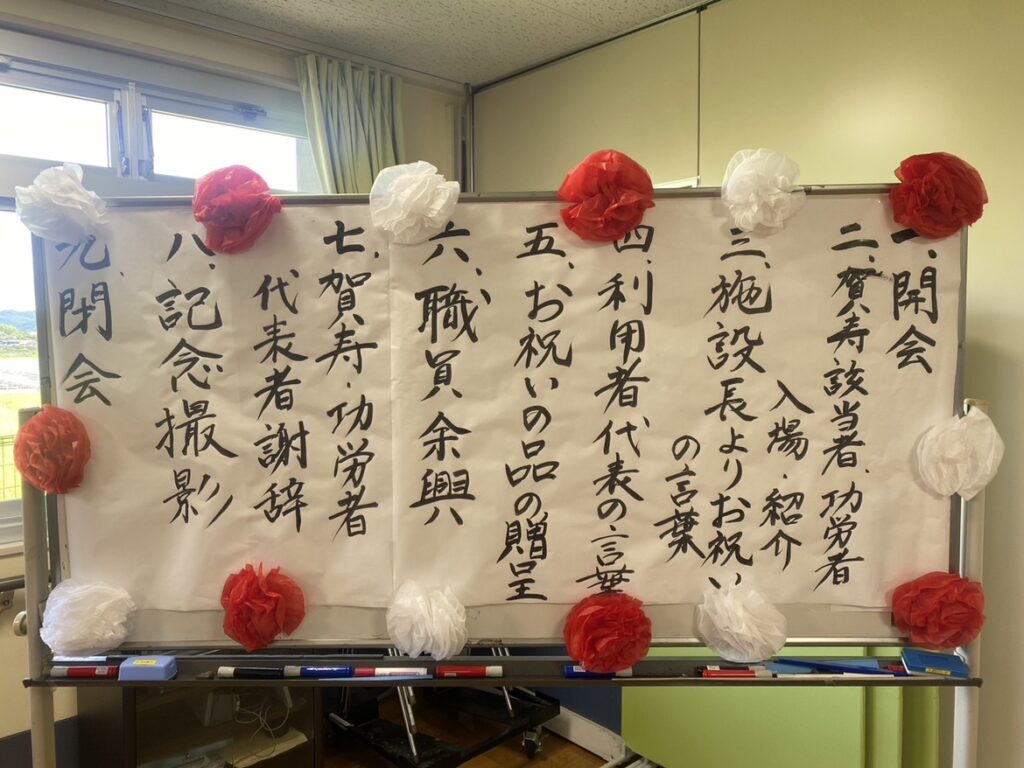 一、開会
二、賀寿該当者・功労者
入場・紹介
三、施設長よりお祝い
の言葉
四、利用者代表の言葉
五、お祝いの品の贈呈
六、職員余興
七、賀寿・功労者
代表者謝辞
八、記念撮影
九、閉会